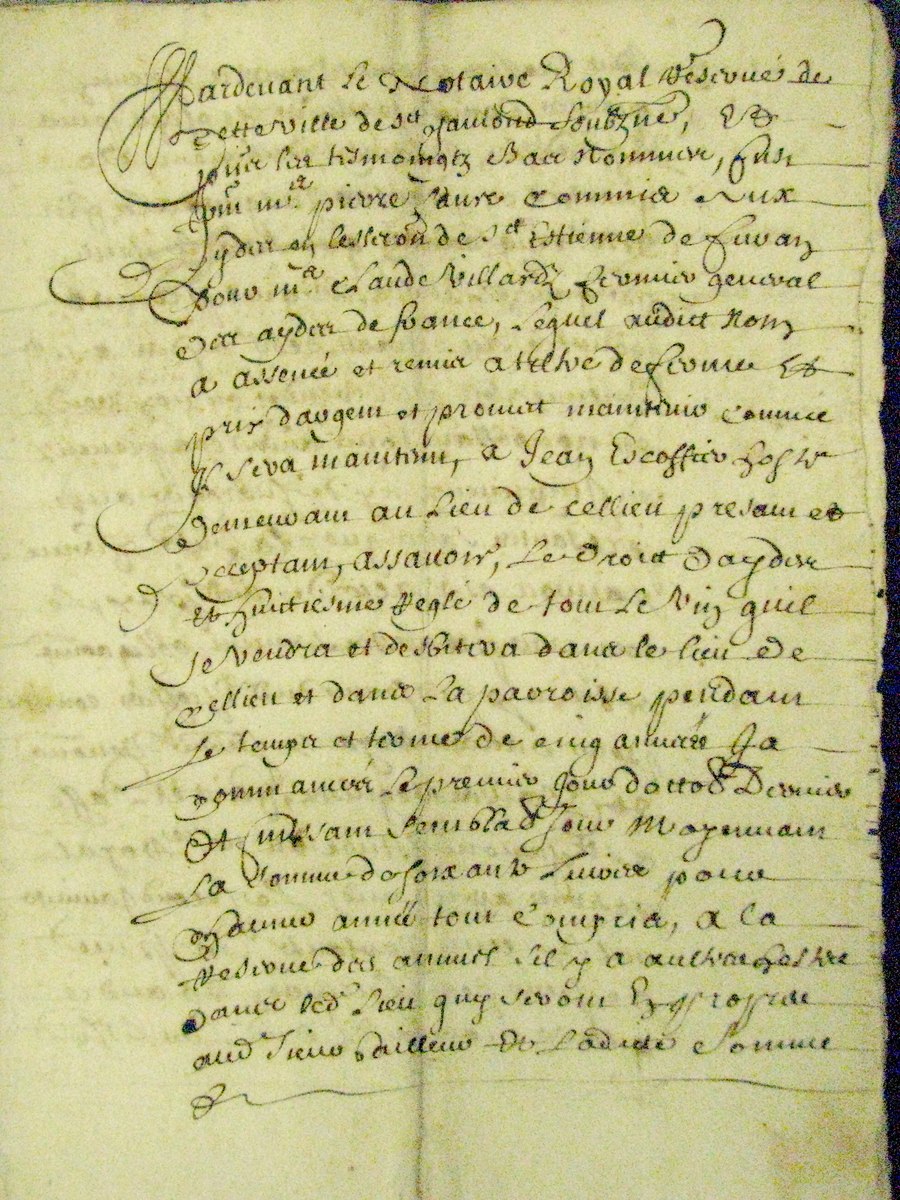 Pardevant le Notaire Royal Reservé de
cette ville de sct chaulond soubzne, Et
pnt les tesmoingtz Bas Nommes, fust
pnt me pierre faure commis aux
aydes en leslection de sct Estienne de furan
pour me Claude Villardz fermier general
des aydes de france, lequel audict Nom
a assencé et remis a tiltre de ferme Et
pris dargent et promet maintenir comme
Il sera maintenu, a Jean Escoffier hoste
demeurant au lieu de cellieu presant et
acceptant, assavoir, le droict daydes
et huictiesme Reglé de tout le Vin quil
se vendra et debitera dans le lieu de
cellieu et dans la parroisse pendant
le temps et terme de cinq années Ja
commancées le premier Jour doctob dernier
Et finissant semblab Jour Moyennant
la somme de soixante livres pour
chacune année tout compris, a la
Reserve des annuel sil y a aultres hostes
dans led lieu quy seront
aud sieur dailleur Et ladicte somme